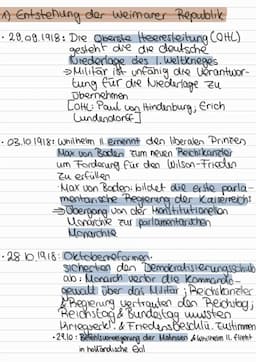 1) Entstehung der Weimarer Republik
· 29.09.1918: Die Oberste Heeresleitung (OHL)
gesteht die die deutsche
Niederlage des 1. Weltkrieges
⇒ Militär ist unfähig die Verantwor-
tung für die Niederlage zu
übernehmen
[OHL: Paul von Hindenburg, Erich
Lundendorff]
· 03.10.1918: Wilhelm II. ernennt den liberalen Prinzen
Max von Baden zum neuen Reichskanzler
um Forderung für den Wilson-Frieden
zu erfüllen
· Max von Baden: bildet die erste parla-
mentarische Regierung der Kaiserreichs
⇒ Übergang von der konstitutionellen
Monarchie zur parlamentarischen
Monarchie
· 28.10.1918: Oktoberreformen:
sicherten den Demokratisierungsschub
ab: Monarch verlor die Kommando-
gewalt über das Militär; Reichskanzler
& Regierung vertrauten den Reichstag;
Reichstag & Bundestag mussten
Kriegserkl. & Friedensbeschlü. zustimmen
· 29.10: Befehlsverweigerung der Matrosen & Wilhelm II. flieht
in holländische Exil